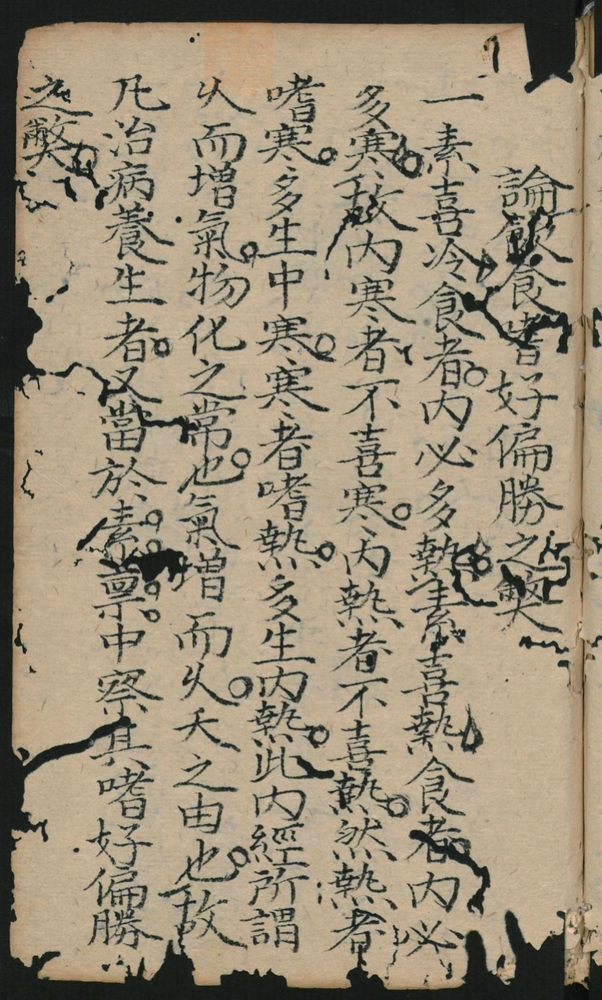 論食嗜好偏勝之獘
一素喜冷食者。内必多熱。素喜熱食者内必
多寒。故内寒者不喜寒。内熱者不喜熱。然熱者
嗜寒。多生中寒。寒者嗜熱。多生内熱。此内經所謂
久而增氣。物化之常也。氣增而久。夭之由也。故
凡治病養生者。又當於素禀中察其嗜好偏勝
之獘。